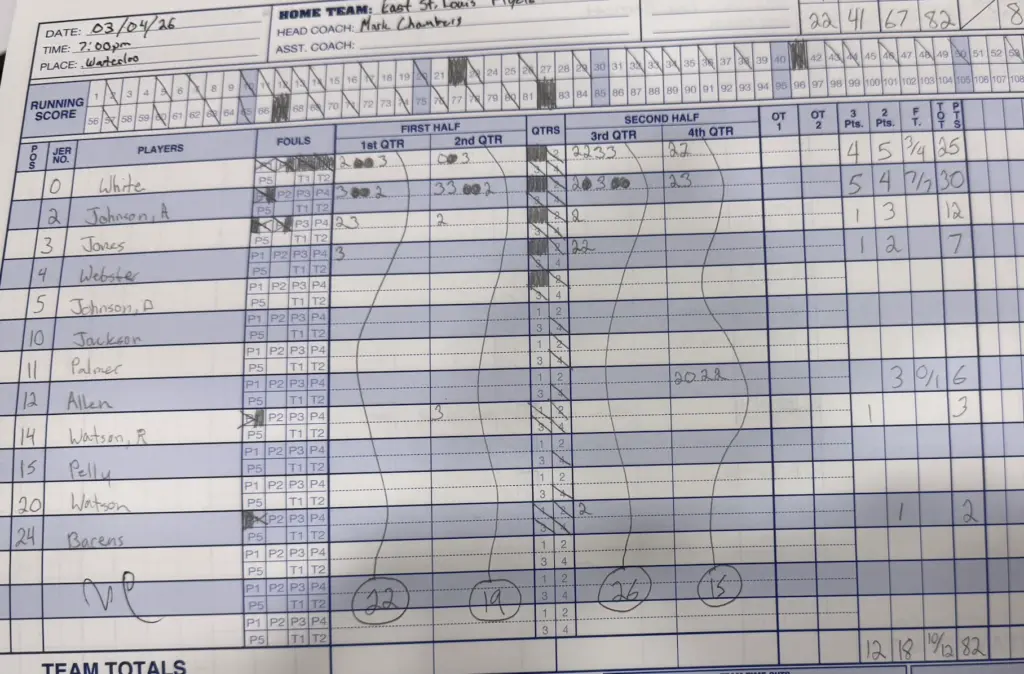 DATE: 03/04/26
TIME: 7:00pm
PLACE: Waterloo
HOME TEAM: East St. Louis Flyers
HEAD COACH: Mark Chambers
ASST. COACH:
22 41 67 82 / 8
RUNNING SCORE
1 2 3 4 5 6 7 8 9 10 11 12 13 14 15 16 17 18 19 20 21 23 24 25 26 27 28 29 30 31 32 33 34 35 36 37 38 39 40 42 43 44 45 46 47 48 49 50 51 52
56 57 58 59 60 61 62 63 64 65 66 68 69 70 71 72 73 74 75 76 77 78 79 80 81 83 84 85 86 87 88 89 90 91 92 93 94 95 96 97 98 99 100 101 102 103 104 105 106 107 108
POS JER NO. PLAYERS FOULS FIRST HALF 1st QTR 2nd QTR QTRS SECOND HALF 3rd QTR 4th QTR OT 1 OT 2 3 Pts. 2 Pts. F T. TOT PTS
0 White P5 T1 T2 2 3 3 2 2233 22 4 5 3/4 25
2 Johnson, A P2 P3 P4 P5 T1 T2 3 2 33 2 2 3 23 5 4 7/7 30
3 Jones P3 P4 P5 T1 T2 23 2 2 1 3 12
4 Webster P1 P2 P3 P4 P5 T1 T2 3 3 4 22 1 2 7
5 Johnson, D P1 P2 P3 P4 P5 T1 T2 3 4
10 Jackson P1 P2 P3 P4 P5 T1 T2 1 2 3 4
11 Palmer P1 P2 P3 P4 P5 T1 T2 1 2 3 4
12 Allen P1 P2 P3 P4 P5 T1 T2 1 2 3 4 2022 3 0/1 6
14 Watson, R P2 P3 P4 P5 T1 T2 3 1 2 3 4 1 3
15 Pelly P1 P2 P3 P4 P5 T1 T2 1 2 3 4
20 Watson P1 P2 P3 P4 P5 T1 T2 1 2 3 4
24 Barens P2 P3 P4 P5 T1 T2 1 2 3 4 2 1 2
P1 P2 P3 P4 P5 T1 T2 1 2 3 4
P1 P2 P3 P4 P5 T1 T2 22 19 1 2 3 4 26 15
P1 P2 P3 P4 P5 T1 T2 1 2 3 4
TEAM TOTALS 12 18 10/12 82